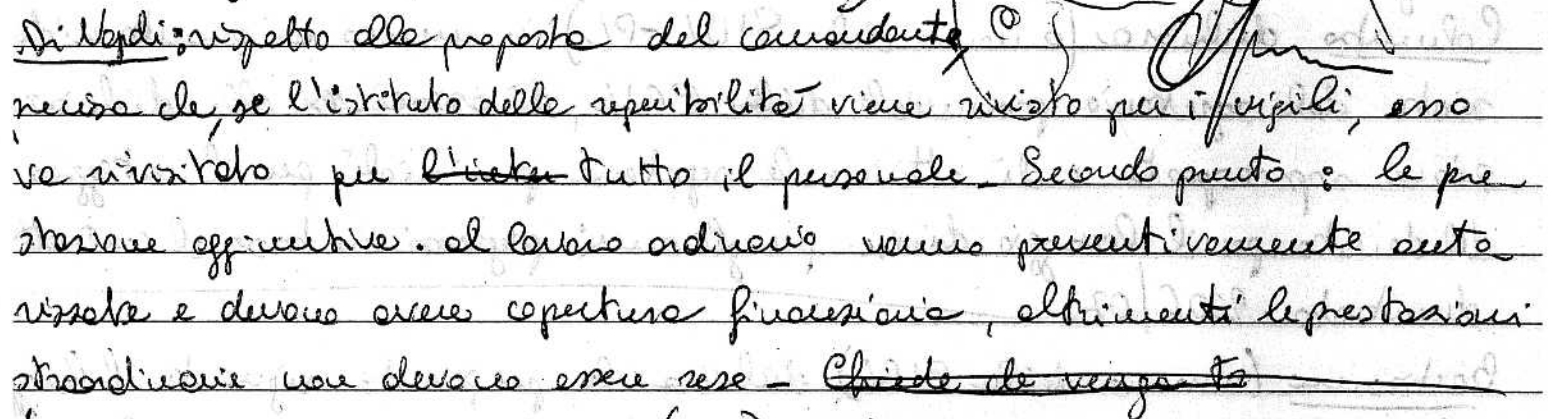 Di Nardi: rispetto alla proposta del comandante
precisa che, se l'istituto della reperibilità viene rivisto per i vigili, esso
va rivisitato per l'inter tutto il personale - Secondo punto : le pre
stazione aggiuntive. al lavoro ordinario vanno preventivamente auto
rizzate e devono avere copertura finanziaria, altrimenti le prestazioni
straordinarie non devono essere rese - Chiede che venga